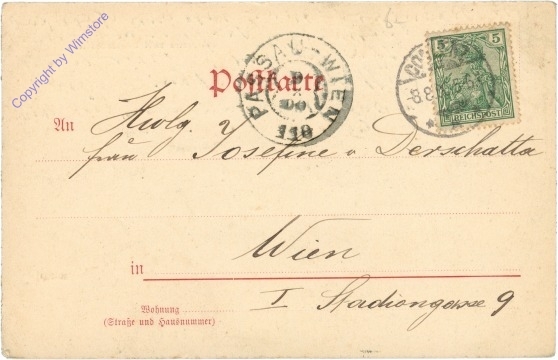 Copyright by Wimstore
Postkarte
PASSAU-WIEN
9
00
110
5 5
REICHSPOST
An Hwlg.
frau Josefine v Derschatta
Wien
in
Wohnung
(Straße und Hausnummer)
I Stadiongasse 9